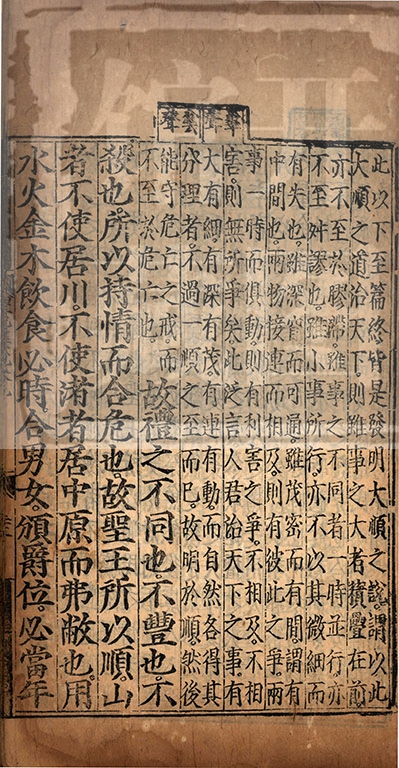 此以下至篇終皆是發明大順之說謂以此
大順之道治天下則雖事之大者積疊在前
亦不至於膠滯雖事之不同者一時並行亦
不至舛謬也雖小事所行亦不以其微細而
有失也雖深窅而可通雖茂密而有間謂有
中間也兩物接連而相及則有彼此之爭兩
事一時而俱動則有利害之爭不相及不相
害則無所爭矣此泛言人君治天下之事有
大有細有深有茂有連有動而自然各得其
分理者不過一順之至而已故明於順然後
能守危亡之戒而
不至於危亡也
故禮之不同也不豐也不
殺也所以持情而合危也故聖王所以順山
者不使居川不使渚者居中原而弗敝也用
水火金木飲食必時合男女頒爵位必當年